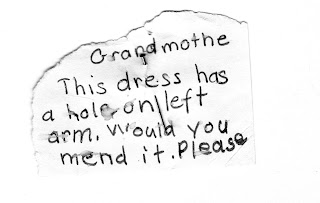 Grandmothe
This dress has
a hole on left
arm. Would you
mend it. Please